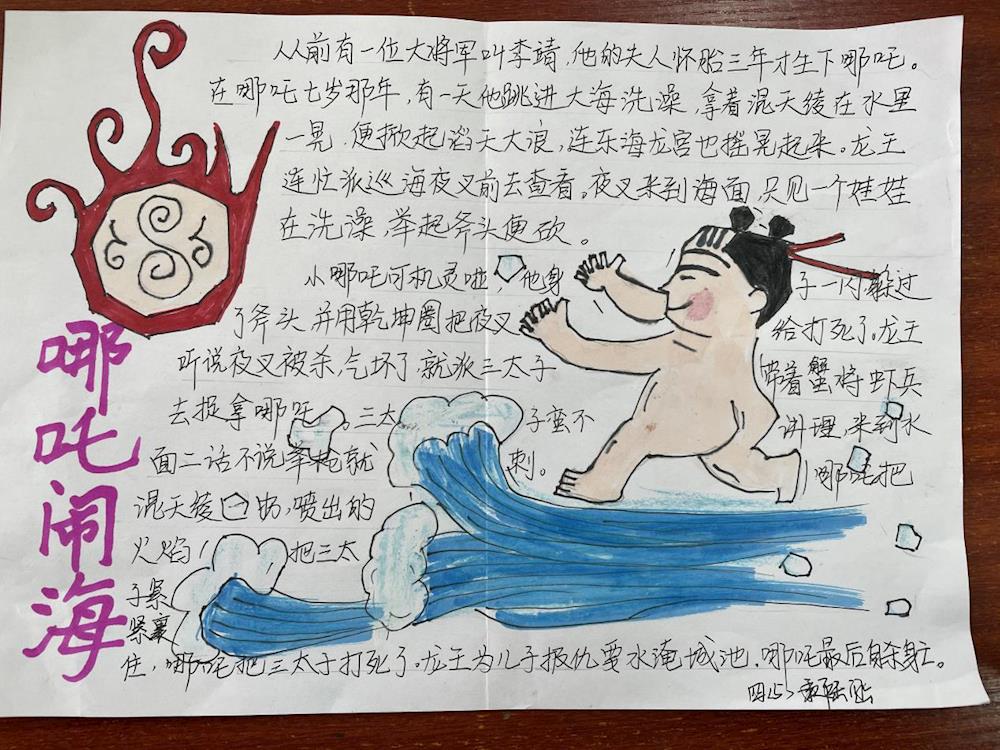 哪吒闹海
从前有一位大将军叫李靖，他的夫人怀胎三年才生下哪吒。
在哪吒七岁那年，有一天他跳进大海洗澡，拿着混天绫在水里
一晃，便掀起滔天大浪，连东海龙宫也摇晃起来。龙王
连忙派巡海夜叉前去查看。夜叉来到海面，只见一个娃娃
在洗澡，举起斧头便砍。
小哪吒可机灵啦，他身子一闪躲过
了斧头，并用乾坤圈把夜叉给打死了。龙王
听说夜叉被杀，气坏了，就派三太子带着蟹将虾兵
去捉拿哪吒。三太子蛮不讲理，来到水
面二话不说举枪就刺。哪吒把
混天绫一扔，喷出的
火焰把三太
子紧
紧裹
住，哪吒把三太子打死了。龙王为儿子报仇要水淹城池，哪吒最后自杀身亡。